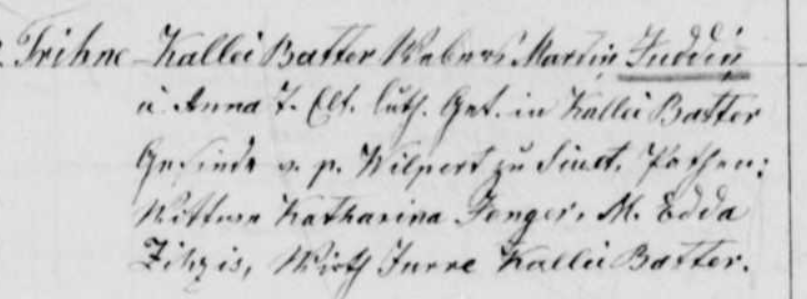 Trihne Kallei Batter Webers Martin Juddin
u. Anna T. Elt. luth. Get. in Kallei Batter
Gesinde v. p. Wilpert zu Siuxt. Pathen:
Wittwe Katharina Jenger, M. Edda
Wirth Jurre Kallei Batter.